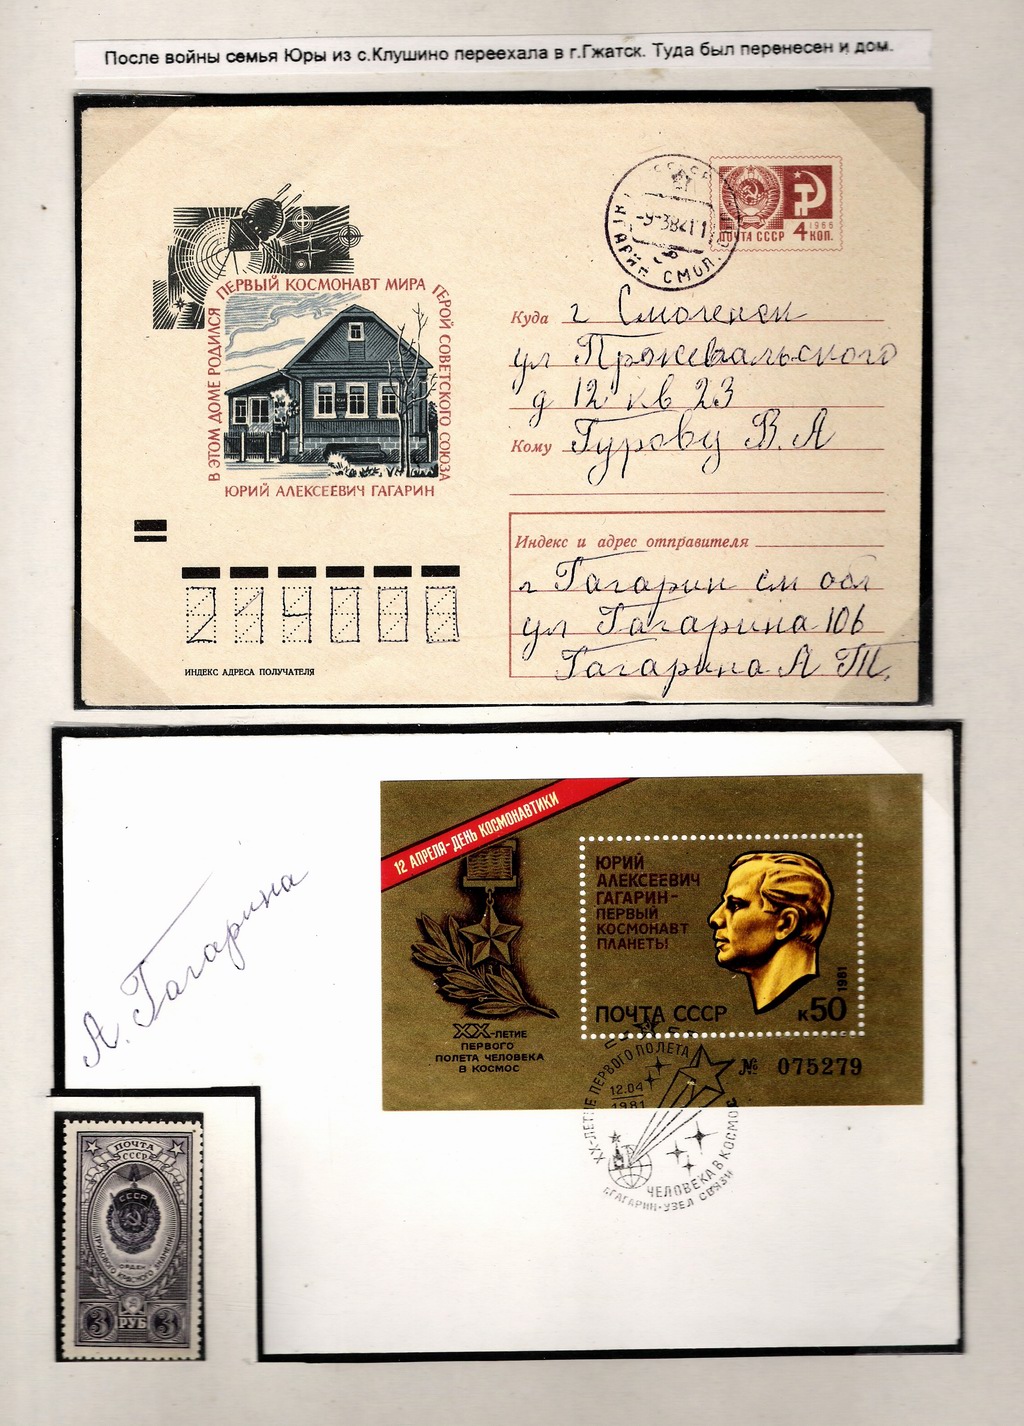 После войны семья Юры из с.Клушино переехала в г.Гжатск. Туда был перенесен и дом.
В ЭТОМ ДОМЕ РОДИЛСЯ
ПЕРВЫЙ КОСМОНАВТ МИРА
ГЕРОЙ СОВЕТСКОГО СОЮЗА
ЮРИЙ АЛЕКСЕЕВИЧ ГАГАРИН
СМОЛ.
ПОЧТА СССР
1966
4 КОП.
Куда г Смоленск
ул Пржевальского
д 12 кв 23
Кому Гурову В. А
Индекс и адрес отправителя
г Гагарин см обл
ул Гагарина 106
Гагарина А Т.
214000
ИНДЕКС АДРЕСА ПОЛУЧАТЕЛЯ
А. Гагарина
12 АПРЕЛЯ-ДЕНЬ КОСМОНАВТИКИ
ЮРИЙ
АЛЕКСЕЕВИЧ
ГАГАРИН-
ПЕРВЫЙ
КОСМОНАВТ
ПЛАНЕТЫ
1981
ПОЧТА СССР
к50
XX-ЛЕТИЕ
ПЕРВОГО
ПОЛЕТА ЧЕЛОВЕКА
В КОСМОС
№ 075279
XX-ЛЕТИЕ ПЕРВОГО ПОЛЕТА
12.04
1981
ЧЕЛОВЕКА В КОСМОС
ГАГАРИН-УЗЕЛ СВЯЗИ
ПОЧТА
СССР
СССР
ОРДЕН
ТРУДОВОГО КРАСНОГО ЗНАМЕНИ
3 РУБ 3